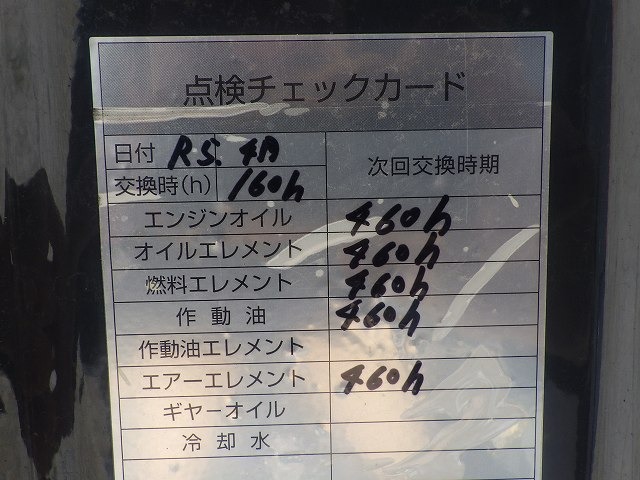 点検チェックカード
日付 R5. 4月
次回交換時期
交換時(h) 160h
エンジンオイル 460h
オイルエレメント 460h
燃料エレメント 460h
作動油 460h
作動油エレメント
エアーエレメント 460h
ギヤーオイル
冷却水